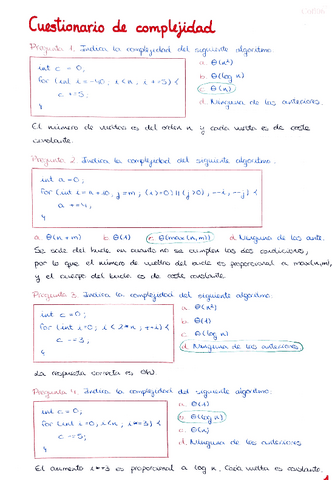 Cuestionario de complejidad
Pregunta 1. Indica la complejidad del siguiente algoritmo.
int c = 0;
for (int i = -40; i < n; i += 5) {
c += 5;
}
a. Θ(n²)
b. Θ(log n)
c. Θ(n)
d. Ninguna de las anteriores.
El número de vueltas es del orden n y cada vuelta es de coste
constante.
Pregunta 2. Indica la complejidad del siguiente algoritmo.
int a = 0;
for (int i = n + 10, j = m; (i > 0) || (j > 0); --i, --j) {
a += 4;
}
a. Θ(n+m)
b. Θ(1)
c. Θ(max(n,m))
d. Ninguna de las ante.
Se sale del bucle en cuanto no se cumplen las dos condiciones,
por lo que el número de vueltas del bucle es proporcional a max(n,m),
y el cuerpo del bucle es de coste constante.
Pregunta 3. Indica la complejidad del siguiente algoritmo.
int c = 0;
for (int i = 0; i < 2*n; ++i) {
c -= 3;
}
a. Θ(n²)
b. Θ(1)
c. Θ(log n)
d. Ninguna de las anteriores
La respuesta correcta es Θ(n).
Pregunta 4. Indica la complejidad del siguiente algoritmo.
int c = 0;
for (int i = n; i *= 3) {
c -= 5;
}
a. Θ(1)
b. Θ(log n)
c. Θ(n)
d. Ninguna de las anteriores
El aumento i *= 3 es proporcional a log n. Cada vuelta es constante.